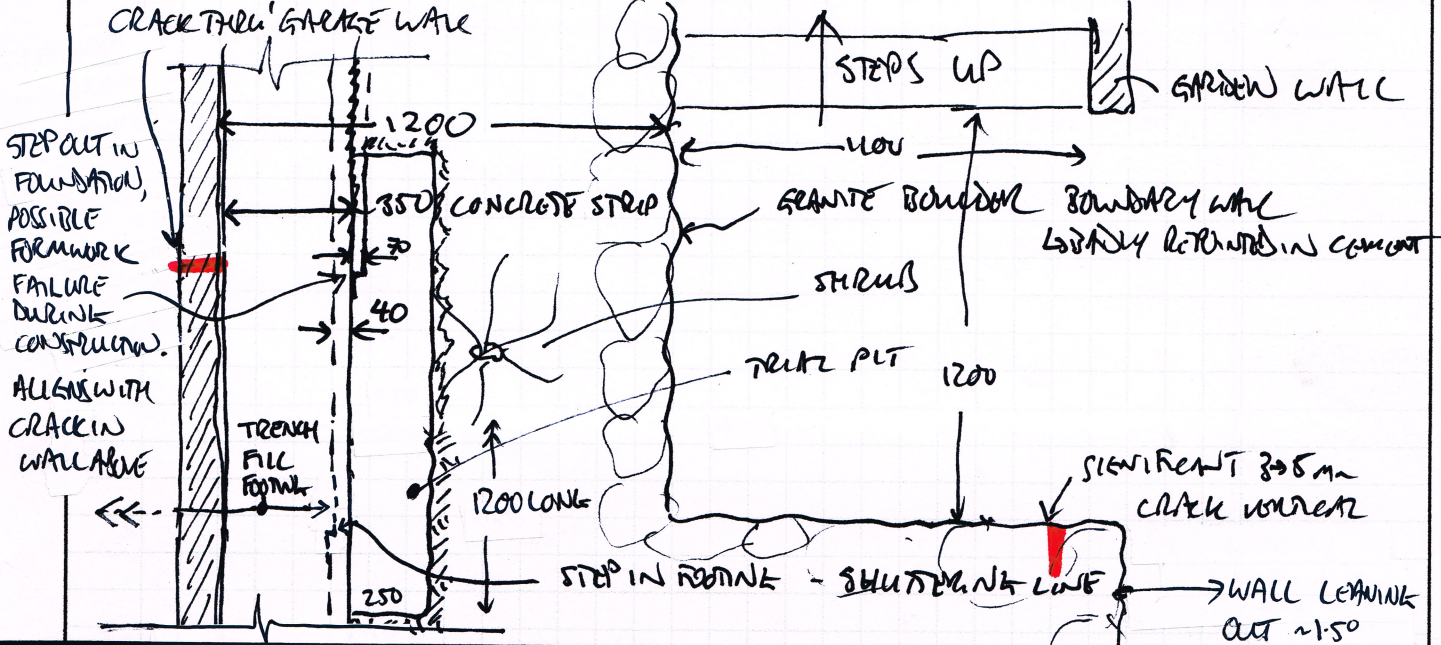 CRACK THRU' GARAGE WALL
STEPS UP
GARDEN WALL
1200
1100
STEP OUT IN
FOUNDATION,
POSSIBLE
FORMWORK
FAILURE
DURING
CONSTRUCTION.
ALIGNS WITH
CRACK IN
WALL ABOVE
350
CONCRETE STRIP
70
40
GRANITE BOULDER BOUNDARY WALL
REPOINTED IN CEMENT
SHRUB
TRIAL PIT
1200
TRENCH
FILL
FOOTING
1200 LONG
SIGNIFICANT 3→5mm
CRACK VERTICAL
STEP IN FOOTING - SHUTTERING LINE
250
WALL LEANING
OUT ~1.5°